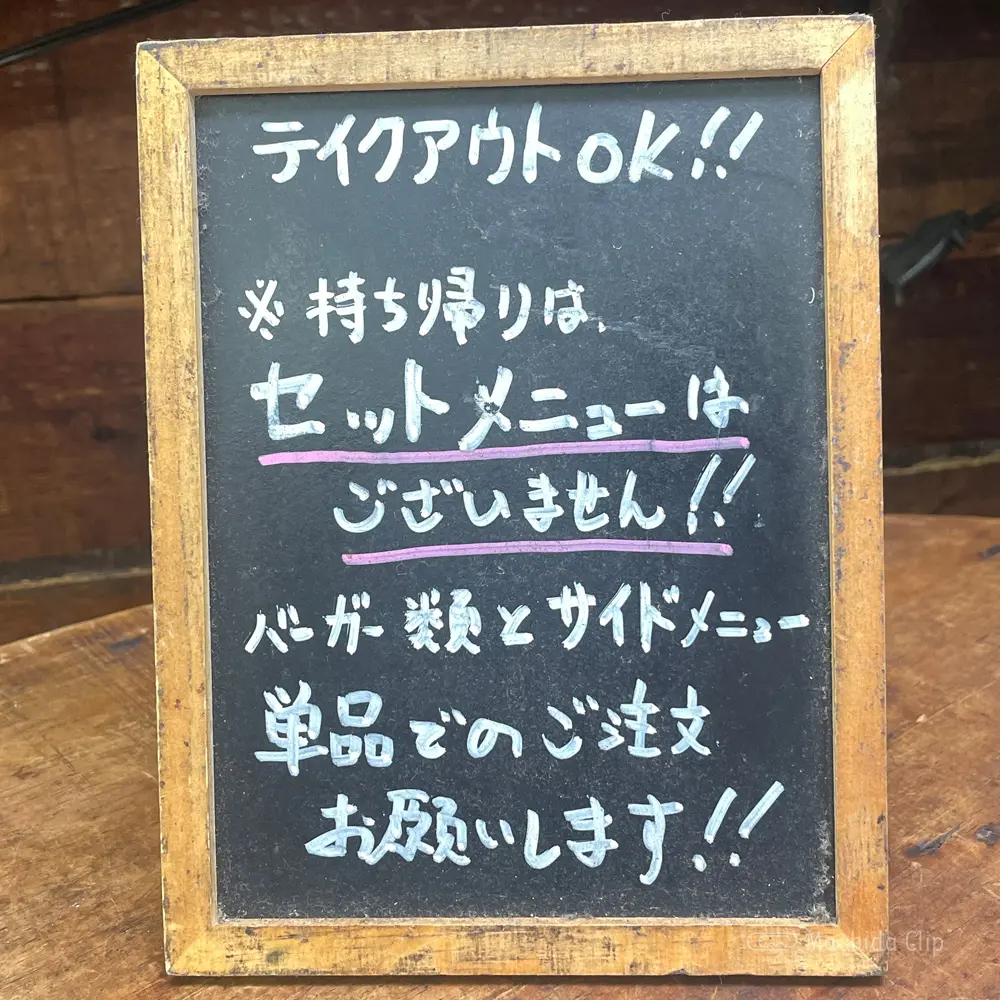 テイクアウトOK!!
※持ち帰りは、
セットメニューは
ございません!!
バーガー類とサイドメニュー
単品でのご注文
お願いします!!
Machida Clip